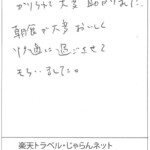 かりられて大変助かりました。
朝食が大変おいしく
快適に過ごさせて
もらいました。
楽天トラベル・じゃらんネット